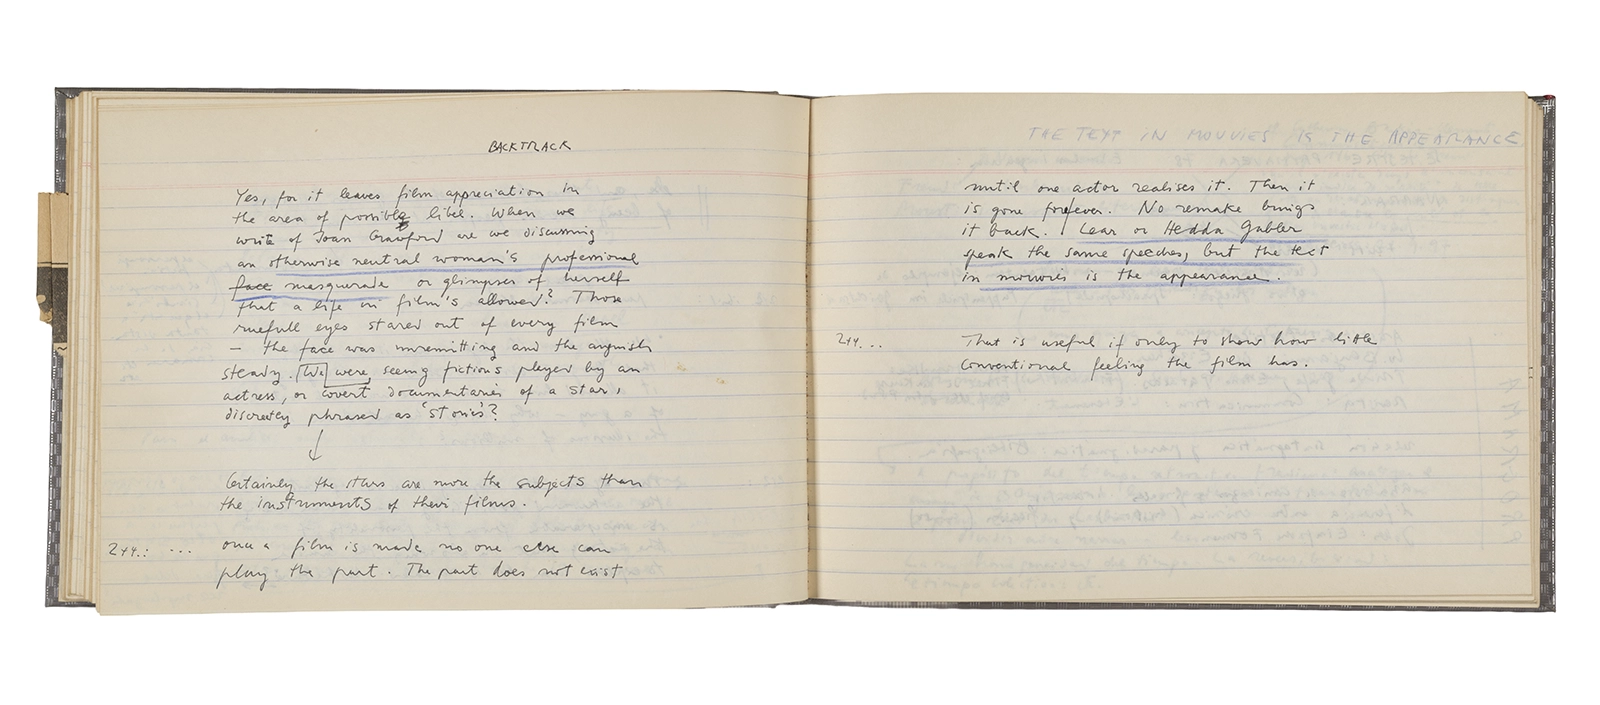 BACKTRACK
Yes, for it leaves film appreciation in
the area of possible libel. When we
write of Joan Crawford are we discussing
an otherwise neutral woman's professional
face masquerade or glimpses of herself
that a life in film's allowed? Those
ruefull eyes stared out of every film
– the face was unremitting and the anguish
steady. We were seeing fictions played by an
actress, or covert documentaries of a star,
discreetly phrased as 'stories'?
Certainly the stars are more the subjects than
the instruments of their films.
244.: ... once a film is made no one else can
play the part. The part does not exist
THE TEXT IN MOUVIES IS THE APPEARANCE
until one actor realises it. Then it
is gone forever. No remake brings
it back. Lear or Hedda Gabler
speak the same speeches, but the text
in mouvies is the appearance.
244... That is useful if only to show how little
conventional feeling the film has.